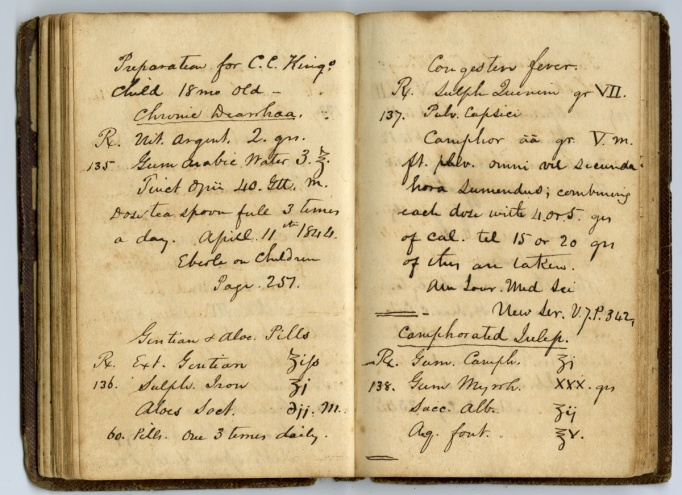 Preparation for C.C. King's
Child 18 mo old –
Chronic Diarrhaa.
Rx. Nit. Argent. 2. grs.
135 Gum Arabic Water 3. ℥.
Tinct Opii 40. Gtt. M.
Dose tea spoon full 3 times
a day. Aprill. 11th 1844.
Eberle on Children
Page. 257.
Gentian & Aloe. Pills
Rx. Ext. Gentian ʒiſs
136. Sulph. Iron ʒj
Aloes Soct. ℈jj. M.
60. Pills. One 3 times daily.
Congestin fever.
Rx. Sulph Quinum gr VII.
137. Pulv. Capsici
Camphor āā gr. V. m.
ft. pulv. omni vel secunda
hora Sumendus; combining
each dose with 4. or 5. grs
of Cal. til 15 or 20 grs
of this are taken.
Am. Jour. Med Sci
New Ser. V. 7. P. 342,
Camphorated Julep.
Rx. Gum. Camph. ʒj
138. Gum Myrrh. XXX. grs
Sacc. Alb. ʒij
Aq. font. ℥x.